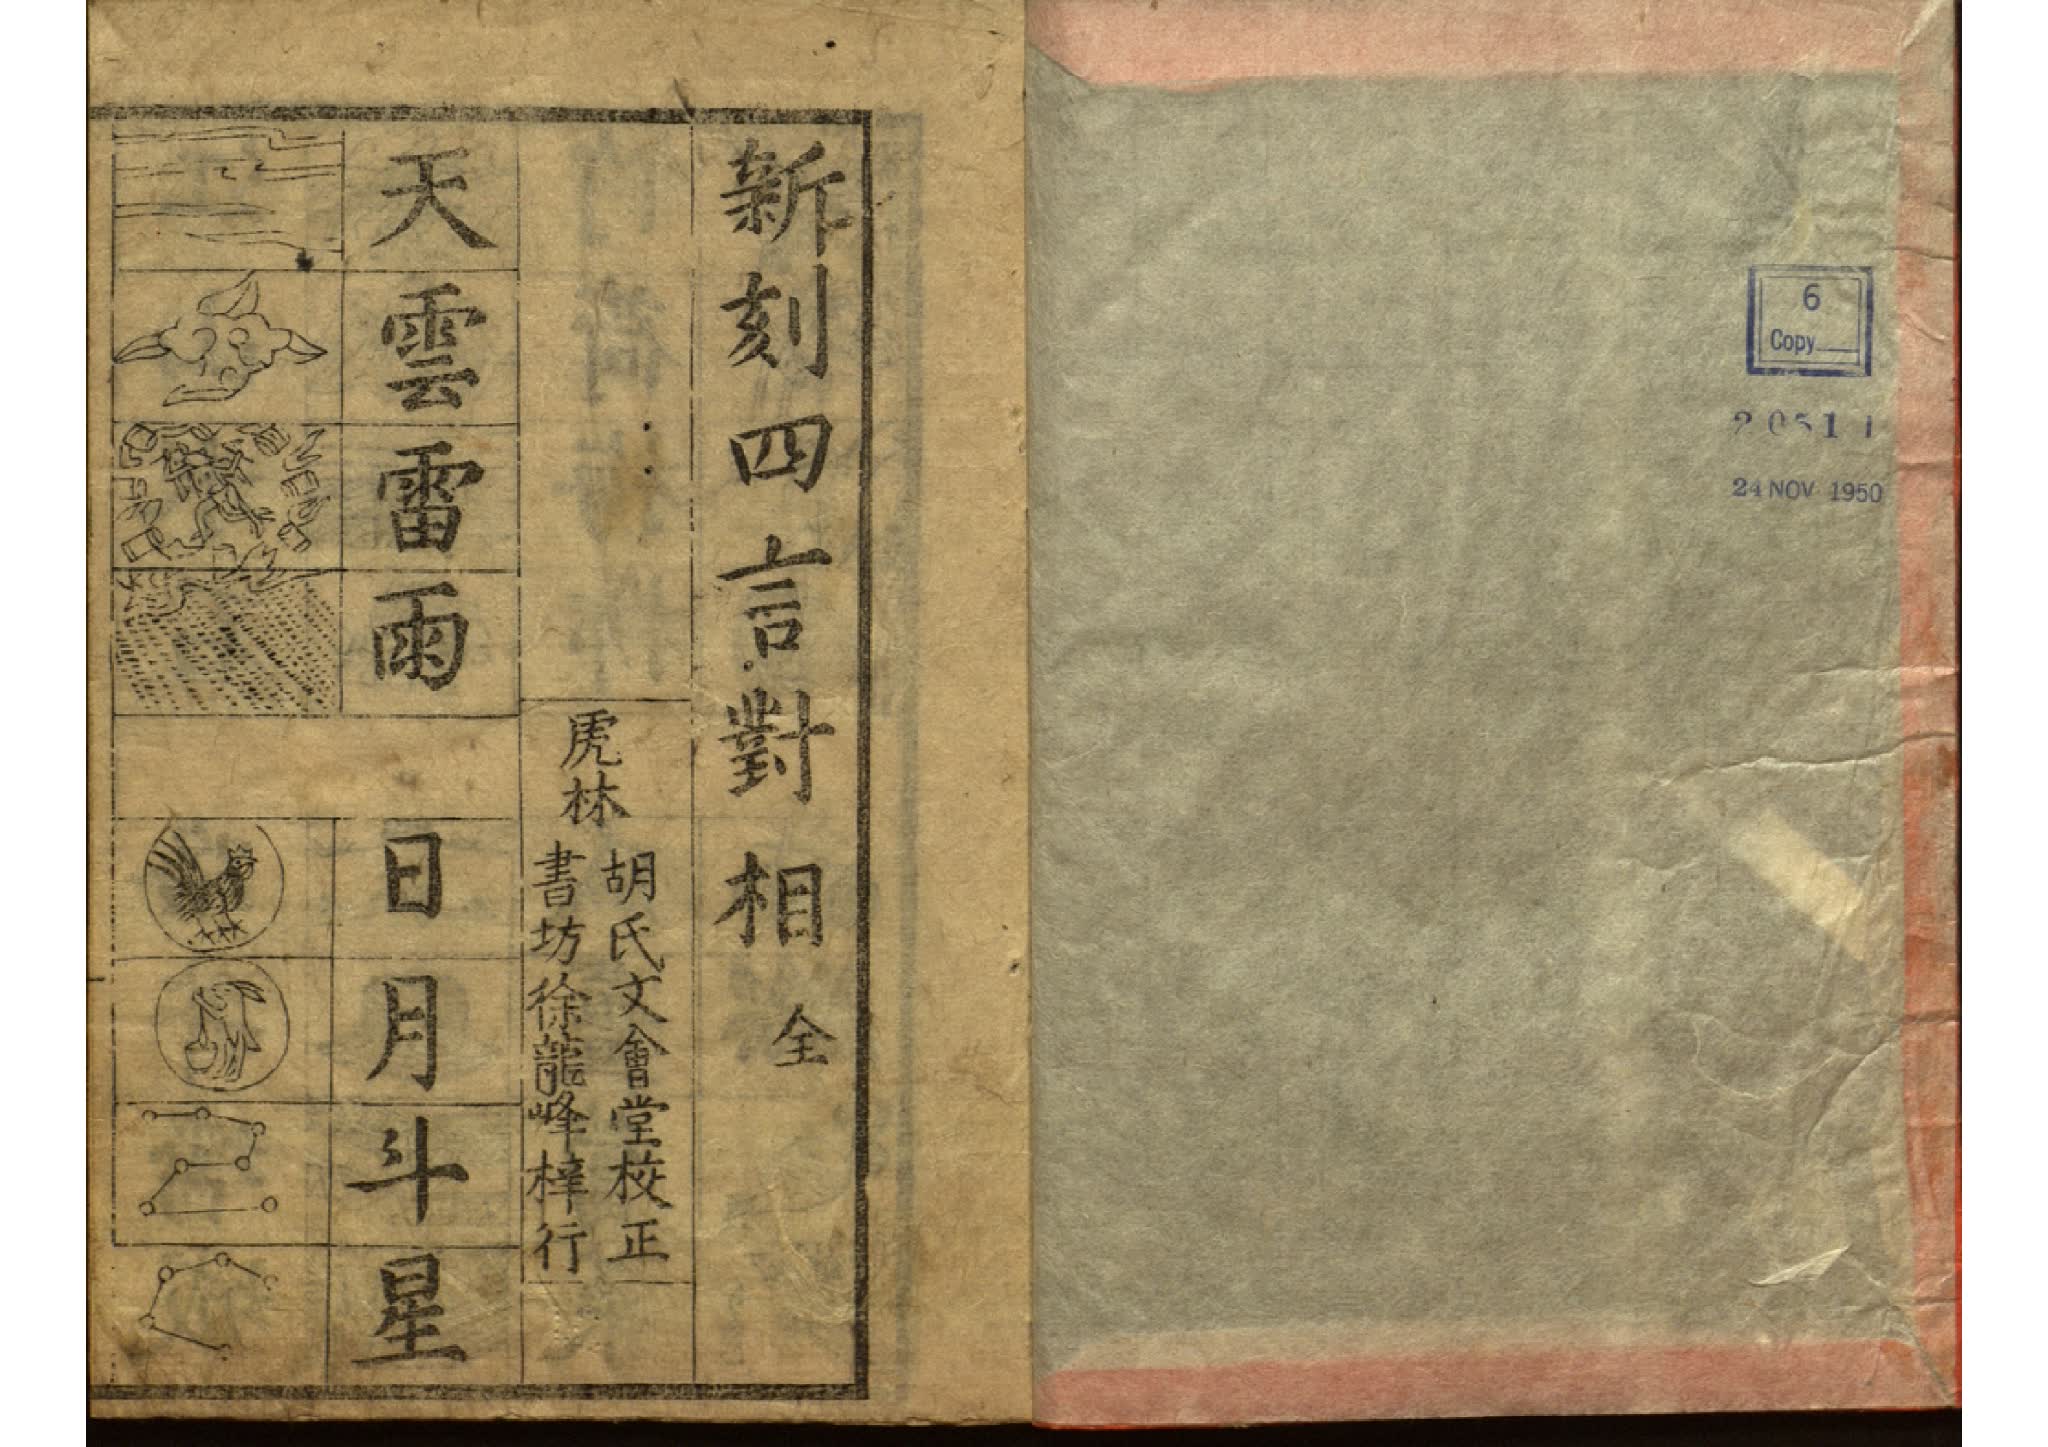 新刻四言對相 全
虎林
胡氏文會堂校正
書坊徐龍峰梓行
天雲雷雨
日月斗星
6
Copy
24 NOV 1950